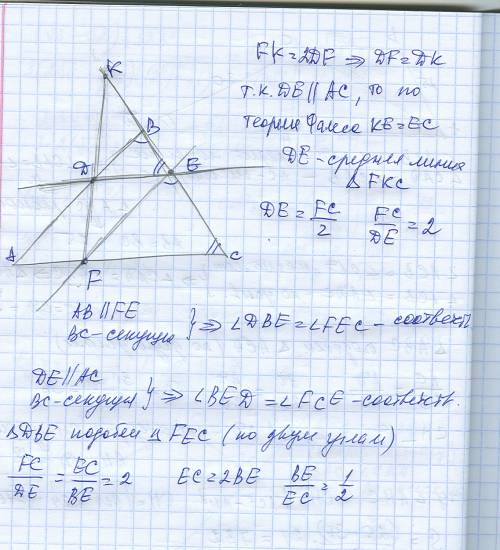 FK = 2DF ⇒ DF = DK
т.к. DE || AC, то по
теореме Фалеса KE = EC
DE - средняя линия
Δ FKC
DE = FC/2 FC/DE = 2
K
B
D
E
A
F
C
AB || FE
BC - секущая } ⇒ ∠DBE = ∠FEC - соответств.
DE || AC
BC - секущая } ⇒ ∠BED = ∠FCE - соответств.
Δ DBE подобен Δ FEC (по двум углам)
FC/DE = EC/BE = 2 EC = 2BE BE/EC = 1/2